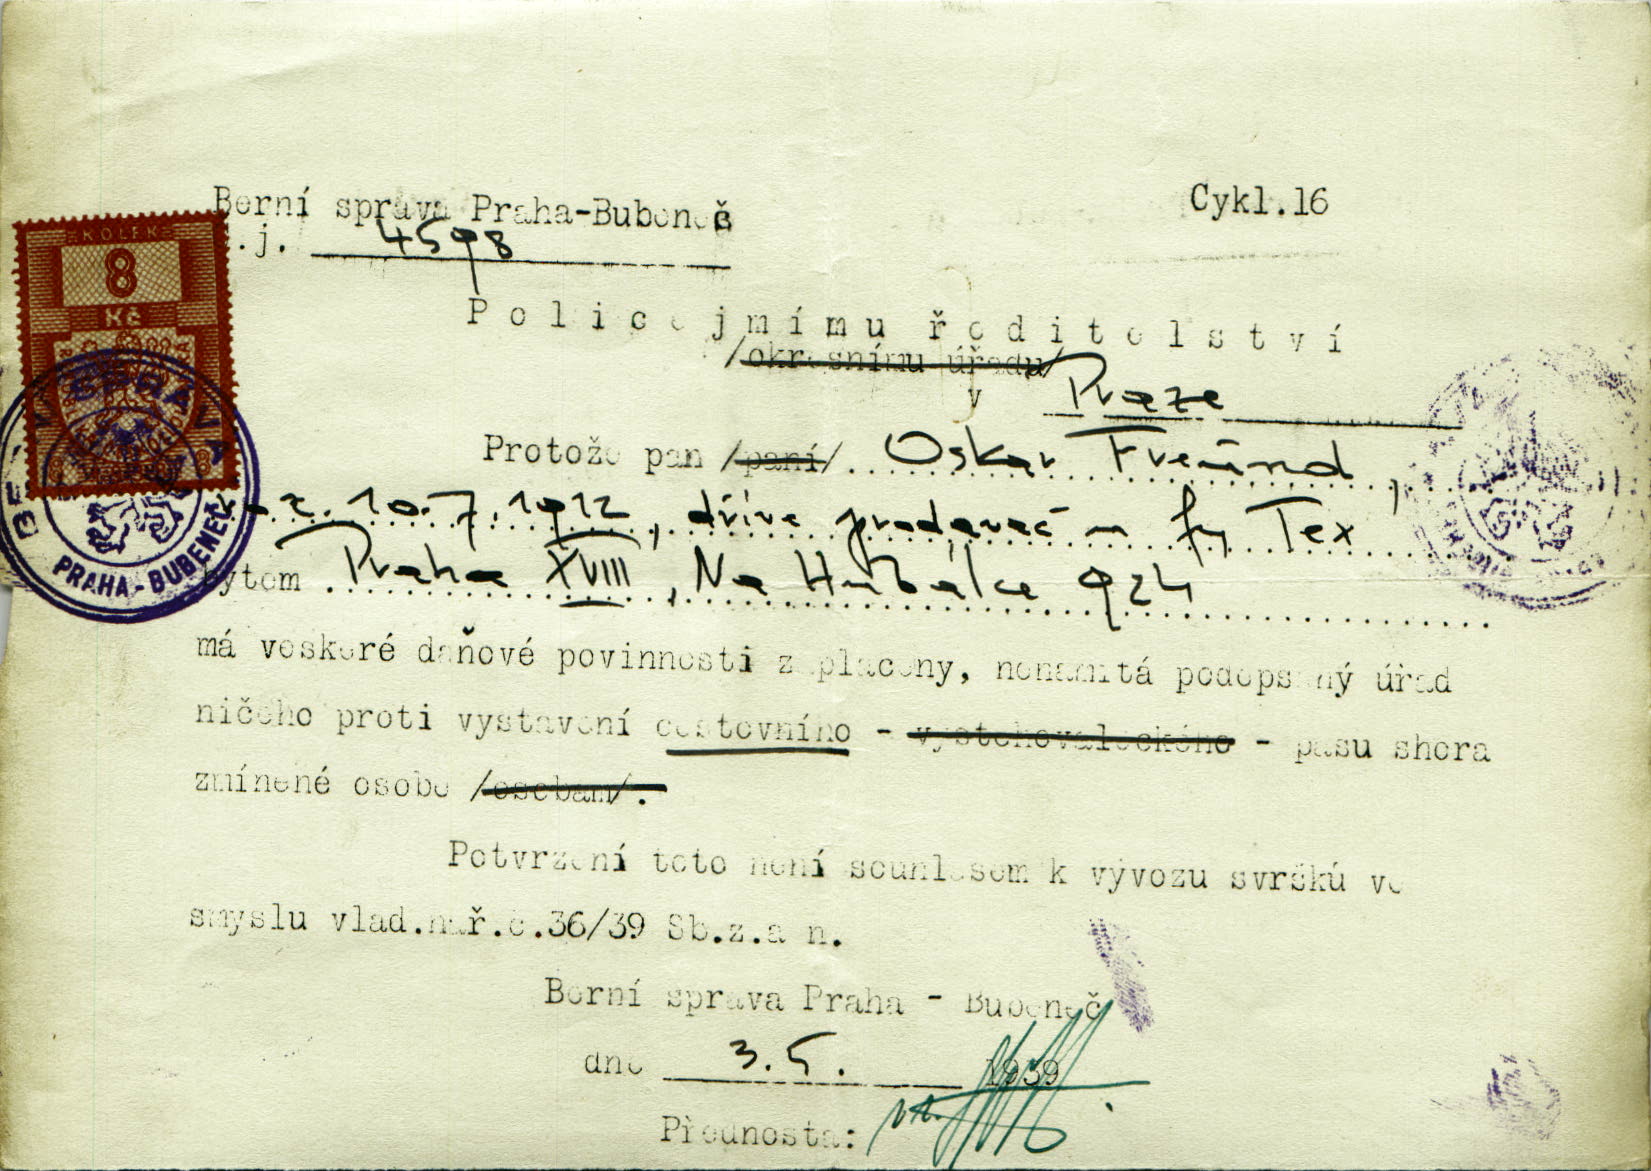 Berní správa Praha-Bubeneč
Cykl.16
.j. 4598
KOLEK
8
Kč
Policejmímu ředitelství
/okresnímu úřadu/
v Praze
Protože pan /paní/ Oskar Freund,
10.7.1912, dříve prodavač u fy Tex
bytem Praha XVIII, Na Hubálce 924
má veškeré daňové povinnosti zaplaceny, nenamítá podepsaný úřad
ničeho proti vystavení cestovního - vystěhovaleckého - pasu shora
zmíněné osobě /osobám/.
Potvrzení toto není souhlasem k vývozu svršků ve
smyslu vlad.nař.č.36/39 Sb.z.a n.
Berní správa Praha - Bubeneč
dne 3.5. 1939
Přednosta:
SPRÁVA
PRAHA-BUBENEČ